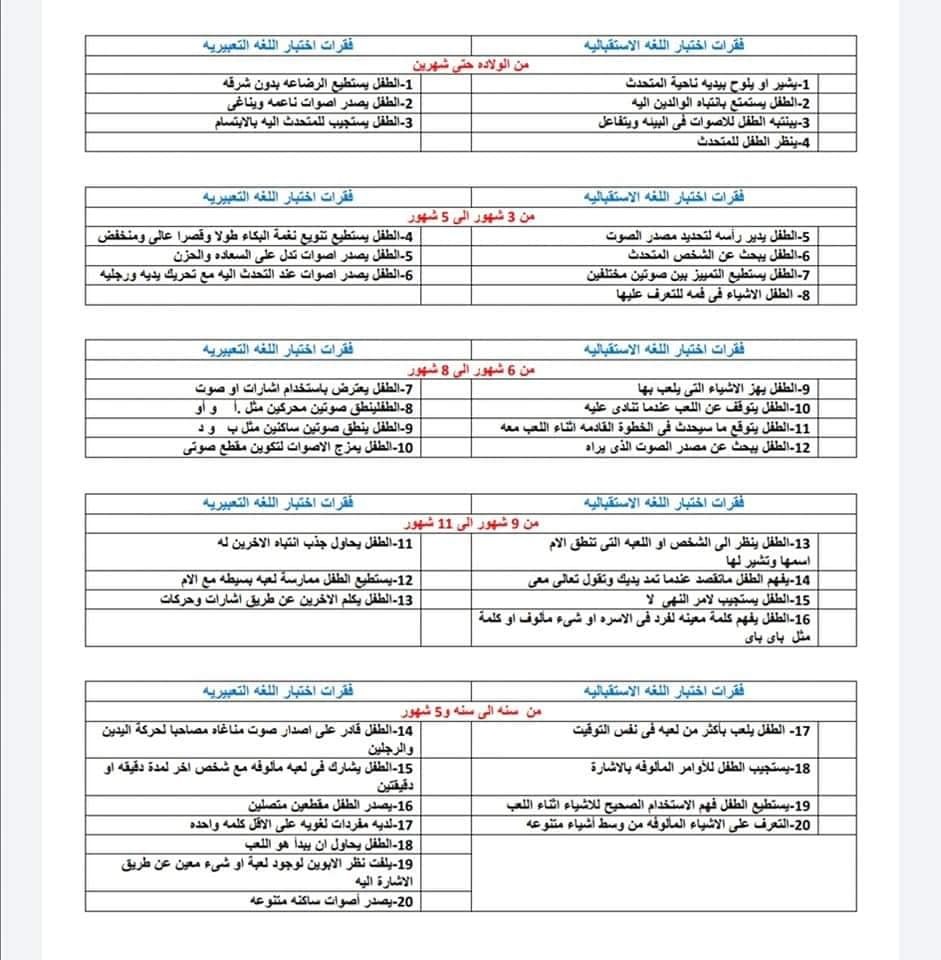 فقرات اختبار اللغه الاستقباليه
فقرات اختبار اللغه التعبيريه
من الولاده حتى شهرين
1-يشير او يلوح بيديه ناحية المتحدث
1-الطفل يستطيع الرضاعه بدون شرقه
2-الطفل يستمتع بانتباه الوالدين اليه
2-الطفل يصدر اصوات ناعمه ويناغى
3-يبنتبه الطفل للاصوات فى البيئه ويتفاعل
3-الطفل يستجيب للمتحدث اليه بالابتسام
4-ينظر الطفل للمتحدث
فقرات اختبار اللغه الاستقباليه
فقرات اختبار اللغه التعبيريه
من 3 شهور الى 5 شهور
5-الطفل يدير رأسه لتحديد مصدر الصوت
4-الطفل يستطيع تنويع نغمة البكاء طولا وقصرا عالى ومنخفض
6-الطفل يبحث عن الشخص المتحدث
5-الطفل يصدر اصوات تدل على السعاده والحزن
7-الطفل يستطيع التمييز بين صوتين مختلفين
6-الطفل يصدر اصوات عند التحدث اليه مع تحريك يديه ورجليه
8- الطفل الاشياء فى فمه للتعرف عليها
فقرات اختبار اللغه الاستقباليه
فقرات اختبار اللغه التعبيريه
من 6 شهور الى 8 شهور
9-الطفل يهز الاشياء التى يلعب بها
7-الطفل يعترض باستخدام اشارات او صوت
10-الطفل يتوقف عن اللعب عندما تنادى عليه
8-الطفلينطق صوتين محركين مثل .أ و أو
11-الطفل يتوقع ما سيحدث فى الخطوة القادمه اثناء اللعب معه
9-الطفل ينطق صوتين ساكنين مثل ب و د
12-الطفل يبحث عن مصدر الصوت الذى يراه
10-الطفل يمزج الاصوات لتكوين مقطع صوتى
فقرات اختبار اللغه الاستقباليه
فقرات اختبار اللغه التعبيريه
من 9 شهور الى 11 شهور
13-الطفل ينظر الى الشخص او اللعبه التى تنطق الام
اسمها وتشير لها
11-الطفل يحاول جذب انتباه الاخرين له
14-يفهم الطفل ماتقصد عندما تمد يديك وتقول تعالى معى
12-يستطيع الطفل ممارسة لعبه بسيطه مع الام
15-الطفل يستجيب لامر النهي لا
13-الطفل يكلم الاخرين عن طريق اشارات وحركات
16-الطفل يفهم كلمة معينه لفرد فى الاسره او شىء مألوف او كلمة
مثل باى باى
فقرات اختبار اللغه الاستقباليه
فقرات اختبار اللغه التعبيريه
من سنه الى سنه و5 شهور
17- الطفل يلعب بأكثر من لعبه فى نفس التوقيت
14-الطفل قادر على اصدار صوت مناغاه مصاحبا لحركة اليدين
والرجلين
18-يستجيب الطفل للأوامر المألوفه بالاشارة
15-الطفل يشارك فى لعبه مألوفه مع شخص اخر لمدة دقيقه او
دقيقتين
19-يستطيع الطفل فهم الاستخدام الصحيح للاشياء اثناء اللعب
16-يصدر الطفل مقطعين متصلين
20-التعرف على الاشياء المألوفه من وسط أشياء متنوعه
17-لديه مفردات لغويه على الاقل كلمه واحده
18-الطفل يحاول ان يبدأ هو اللعب
19-يلفت نظر الابوين لوجود لعبة او شىء معين عن طريق
الاشارة اليه
20-يصدر أصوات ساكنه متنوعه